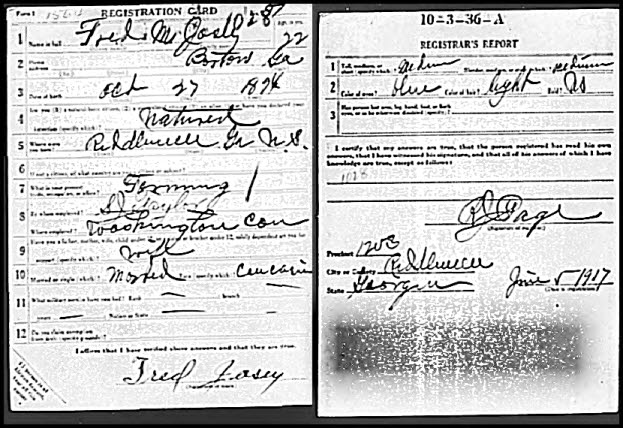 Form 1
REGISTRATION CARD
28
Age, in yrs.
1 Name in full Fred M Josey 22
2 Home address Bartow Ga
3 Date of birth Oct 27
4 Are you (1) a natural-born citizen, (2) a naturalized citizen, (3) an alien, (4) or have you declared your
intention (specify which)? Natural
5 Where were you born? Riddleville Ga U.S.
6 If not a citizen, of what country are you a citizen or subject?
7 What is your present trade, occupation, or office? Farming
8 By whom employed? Taylor
Where employed? Washington Con
9 Have you a father, mother, wife, child under 12, or a sister or brother under 12, solely dependent on you for
support (specify which)? wife
10 Married or single (which)? Married Race (specify which)? Caucasin
11 What military service have you had? Rank — branch —
years — Nation or State —
12 Do you claim exemption from draft (specify grounds)?
I affirm that I have verified above answers and that they are true.
Fred Josey
10-3-36-A
REGISTRAR'S REPORT
1 Tall, medium, or short (specify which)? Medium Slender, medium, or stout (which)? medium
2 Color of eyes? blue Color of hair? light Bald? No
3 Has person lost arm, leg, hand, foot, or both
eyes, or is he otherwise disabled (specify)?
I certify that my answers are true, that the person registered has read his own
answers, that I have witnessed his signature, and that all of his answers of which I have
knowledge are true, except as follows:
1028
Page
(Signature of registrar)
Precinct 1253
City or County Riddleville
State Georgia June 5 1917
(Date of registration)